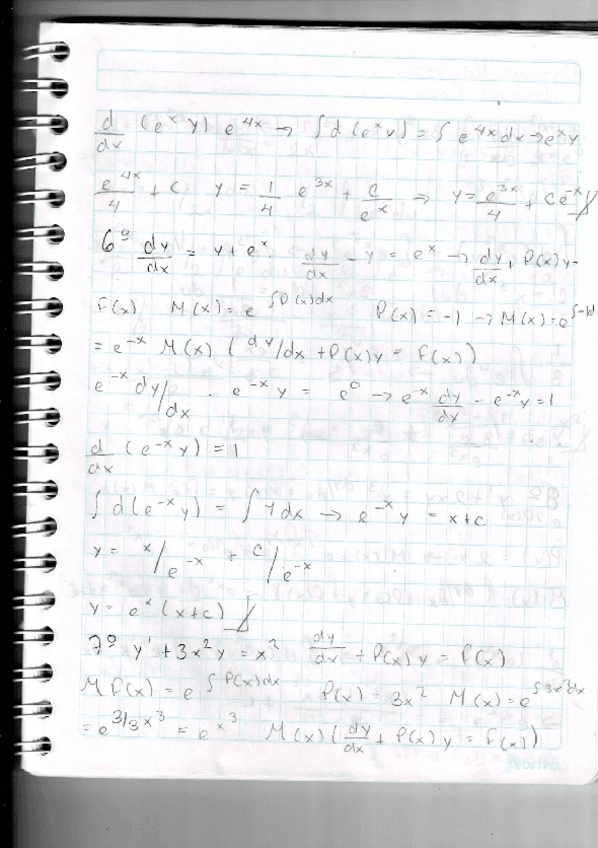 d/dx (e^x y) e^4x → ∫ d (e^x y) = ∫ e^4x dx → e^x y
e^4x/4 + C   y = 1/4 e^3x + C/e^x ⇒ y = e^3x/4 + Ce^-x
6º dy/dx = y + e^x   dy/dx - y = e^x → dy/dx, P(x)y-
F(x)   M(x) = e^∫P(x)dx   P(x) = -1 → M(x) = e^∫-1d
= e^-x   M(x) ( dy/dx + P(x)y = F(x) )
e^-x dy/dx - e^-x y = e^0 → e^-x dy/dx - e^-x y = 1
d/dx (e^-x y) = 1
∫ d(e^-x y) = ∫ 1 dx → e^-x y = x+c
y = x/e^-x + c/e^-x
y = e^x (x+c)
7º y' + 3x^2 y = x^2   dy/dx + P(x) y = F(x)
M F(x) = e^∫P(x)dx   P(x) = 3x^2   M(x) = e^∫3x^2dx
= e^3/3 x^3 = e^x^3   M(x) ( dy/dx + P(x) y = F(x) )
Norma